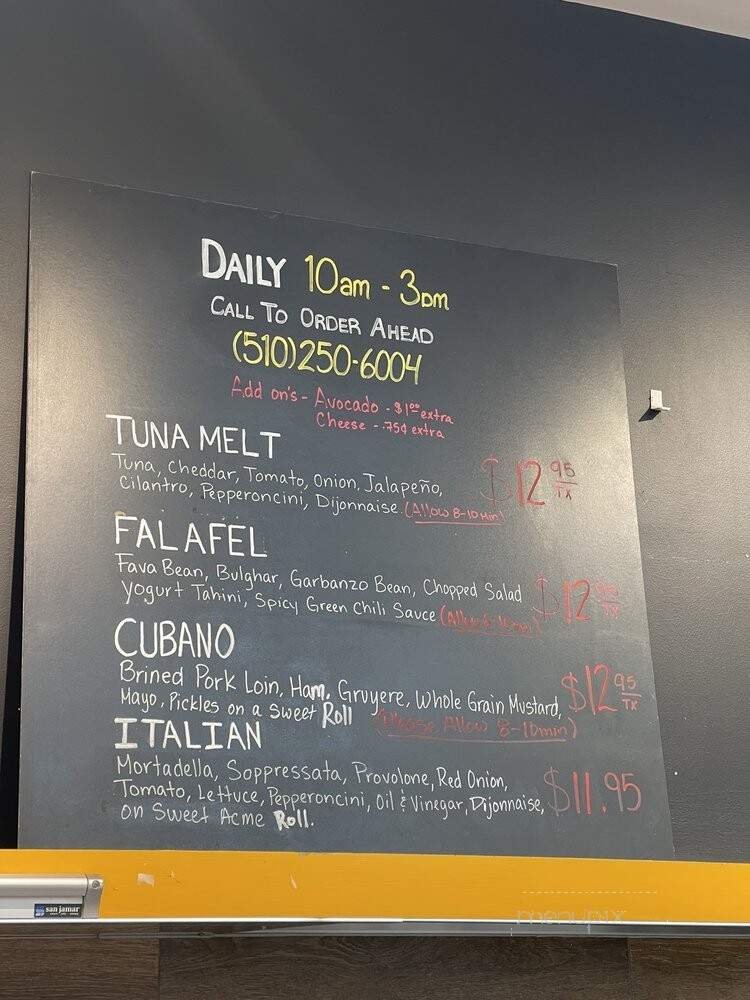 DAILY 10am - 3pm
CALL TO ORDER AHEAD
(510)250-6004
Add on's - Avocado - $1⁰⁰ extra
Cheese - .75¢ extra
TUNA MELT
Tuna, Cheddar, Tomato, Onion, Jalapeño, $12 95 TX
Cilantro, Pepperoncini, Dijonnaise (Allow 8-10 Min)
FALAFEL
Fava Bean, Bulghar, Garbanzo Bean, Chopped Salad $12 95 TX
Yogurt Tahini, Spicy Green Chili Sauce (Allow
CUBANO
Brined Pork Loin, Ham, Gruyere, Whole Grain Mustard, $12 95 TX
Mayo, Pickles on a Sweet Roll (Please Allow 8-10min)
ITALIAN
Mortadella, Soppressata, Provolone, Red Onion,
Tomato, Lettuce, Pepperoncini, Oil & Vinegar, Dijonnaise, $11.95
on Sweet Acme Roll.
san jamar
menupix